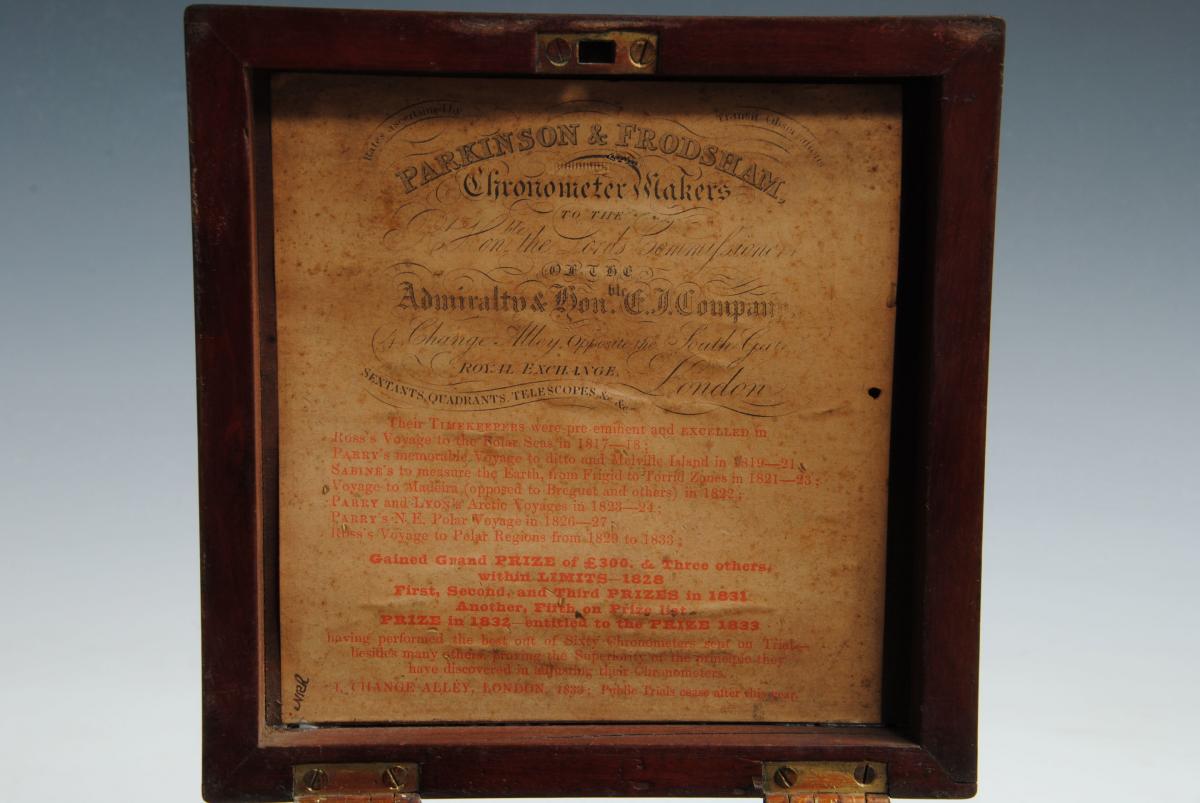 Rates ascertained by Transit Observations
PARKINSON & FRODSHAM,
Chronometer Makers
TO THE
Honble the Lords Commissioners
OF THE
Admiralty & Honble E.I. Company,
4 Change Alley, Opposite the South Gate
ROYAL EXCHANGE, London
SEXTANTS, QUADRANTS, TELESCOPES, &c &c
Their TIMEKEEPERS were pre-eminent and EXCELLED in
ROSS's Voyage to the Polar Seas in 1817—18;
PARRY's memorable Voyage to ditto and Melville Island in 1819—21,
SABINE's to measure the Earth, from Frigid to Torrid Zones in 1821—23;
Voyage to Madeira (opposed to Breguet and others) in 1822;
PARRY and LYON's Arctic Voyages in 1823—24;
PARRY's N. E. Polar Voyage in 1826—27;
Ross's Voyage to Polar Regions from 1829 to 1833;
Gained Grand PRIZE of £300, & Three others,
within LIMITS—1828
First, Second, and Third PRIZES in 1831
Another, Fifth on Prize list
PRIZE in 1832—entitled to the PRIZE 1833
having performed the best out of Sixty Chronometers sent on Trial—
besides many others, proving the Superiority of the principle they
have discovered in adjusting their Chronometers.
4, CHANGE ALLEY, LONDON, 1833; Public Trials cease after this year.